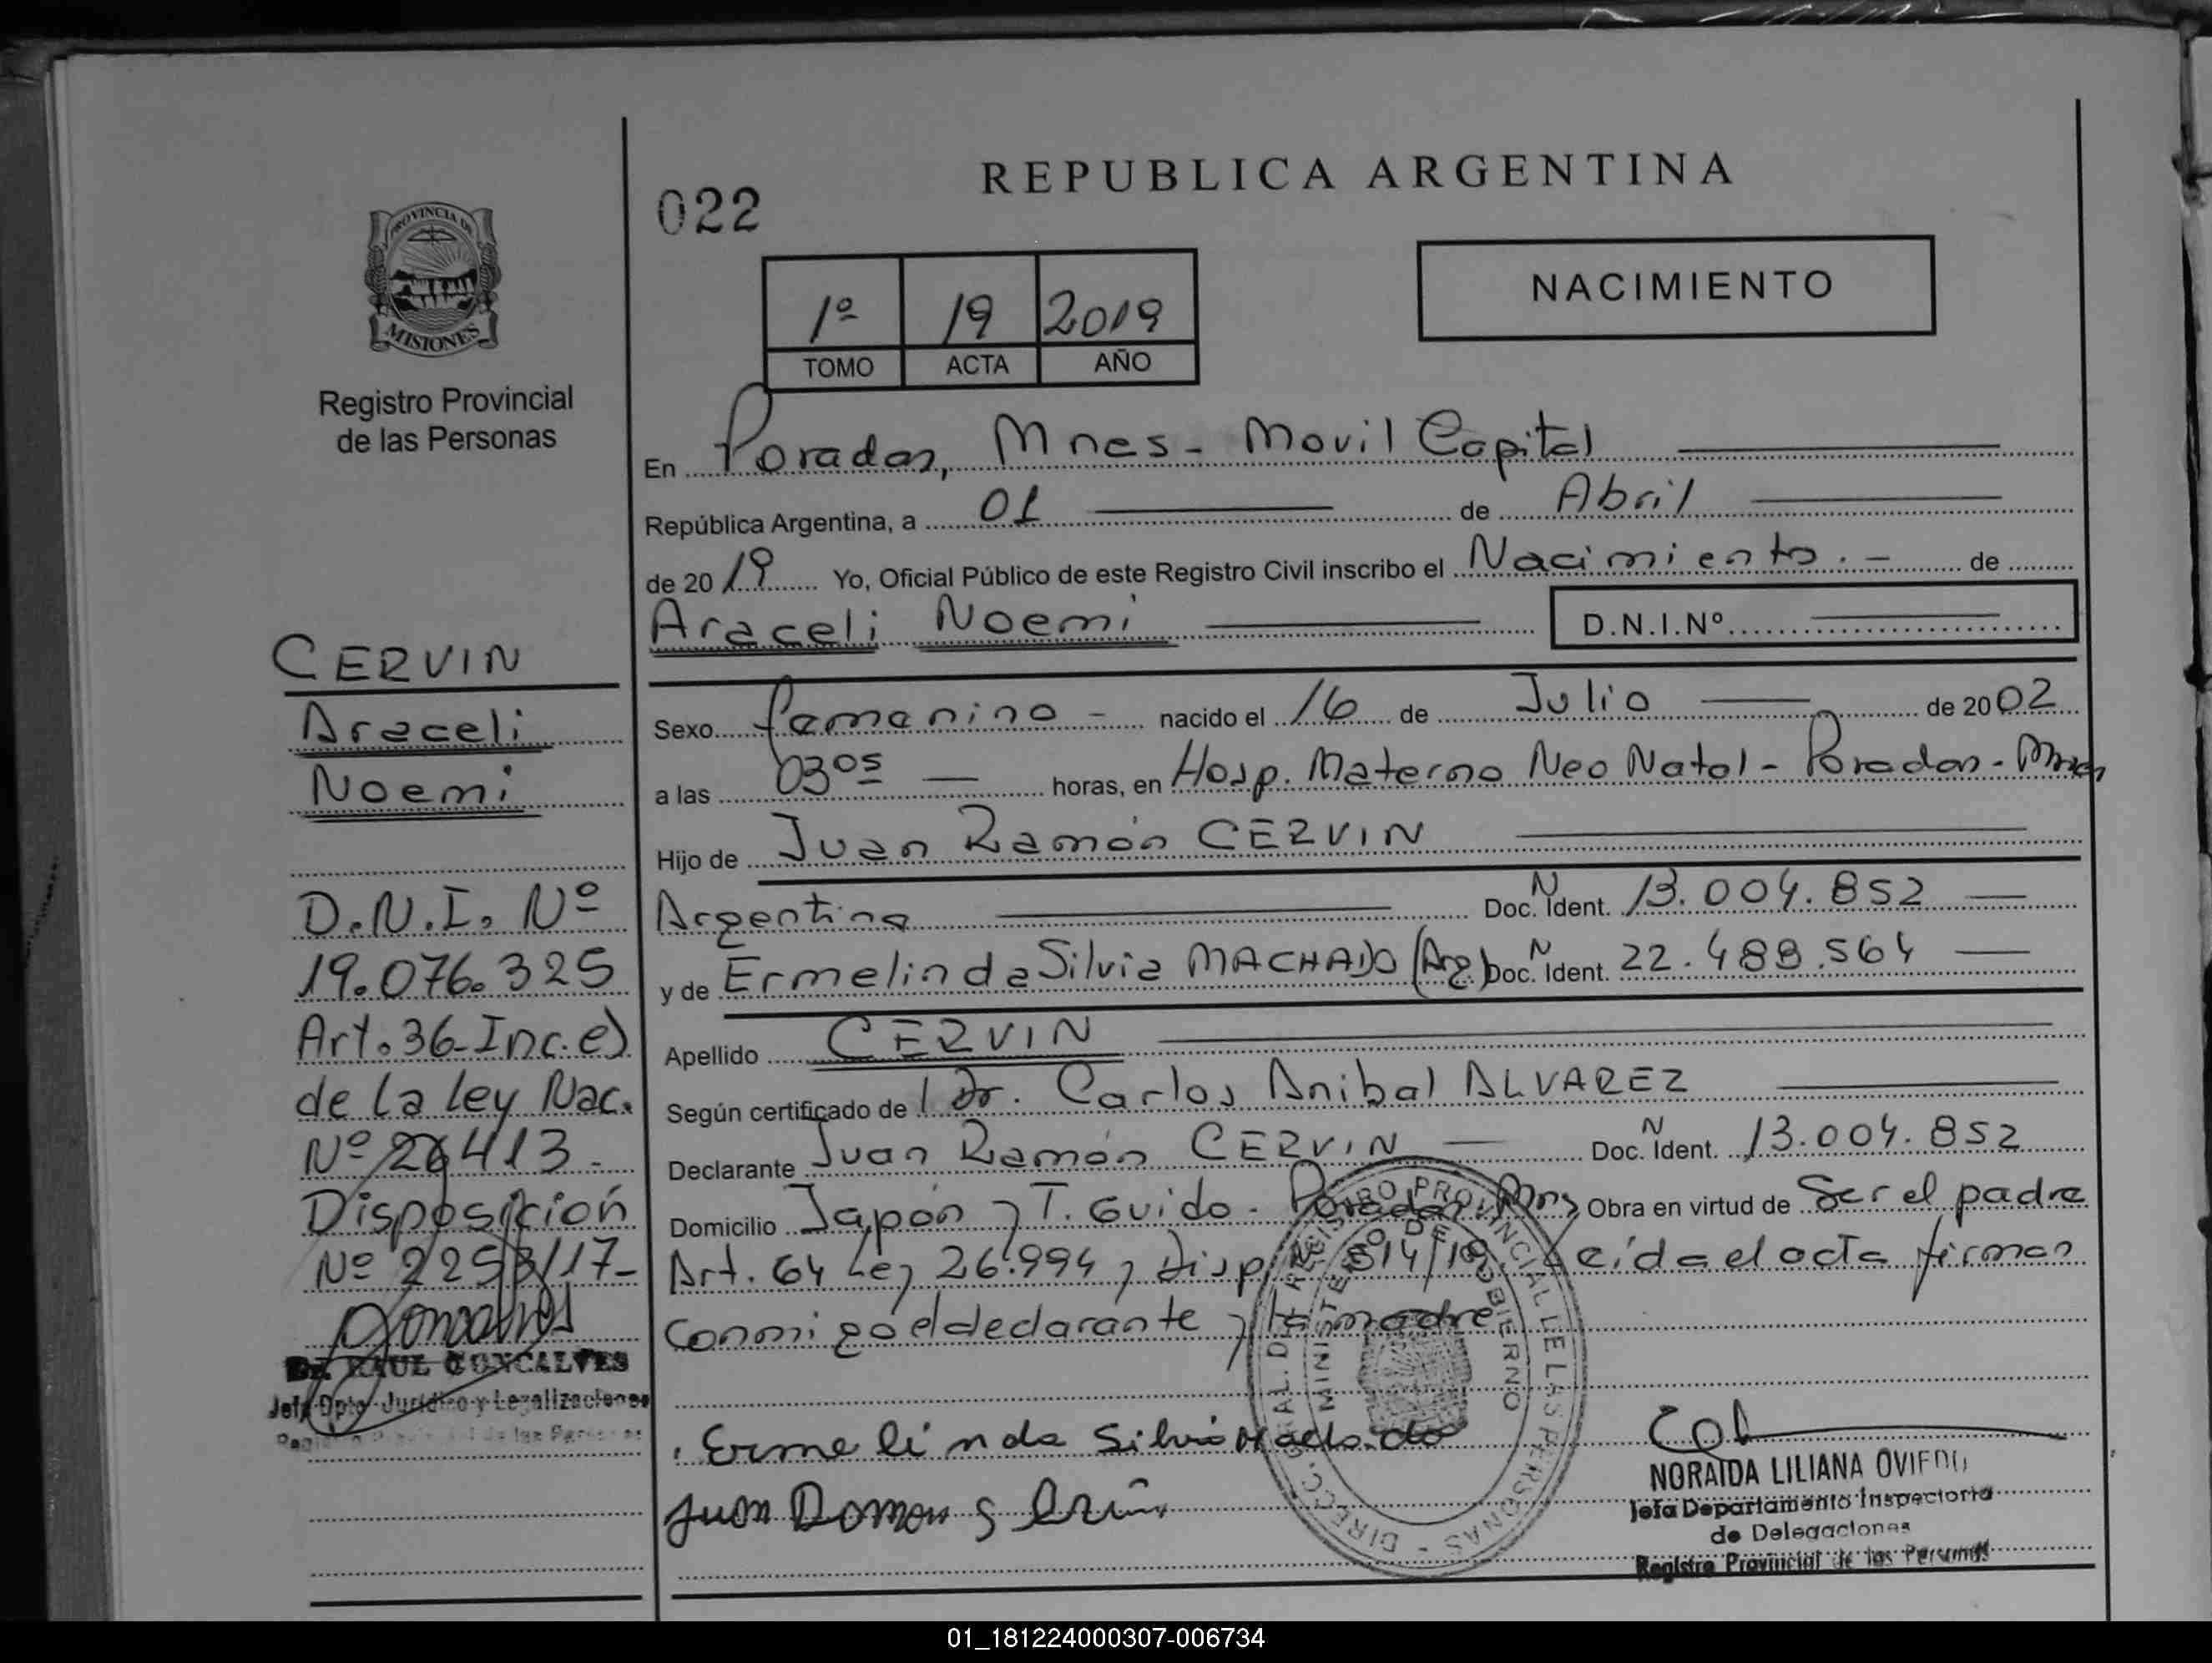 REPUBLICA ARGENTINA
022
PROVINCIA DE
MISIONES
Registro Provincial
de las Personas
1º 19 2019
TOMO ACTA AÑO
NACIMIENTO
En Posadas, Mnes - Movil Capital
República Argentina, a 01 de Abril
de 2019 Yo, Oficial Público de este Registro Civil inscribo el Nacimiento.- de
Araceli Noemi D.N.I.Nº
Sexo femenino - nacido el 16 de Julio de 2002
a las 03 05 horas, en Hosp. Materno Neo Natal - Posadas - Mnes
Hijo de Juan Ramón CERVIN
Argentina Doc. N Ident. 13.004.852
y de Ermelinda Silvia MACHADO (Arg.) Doc. N Ident. 22.488.564
Apellido CERVIN
Según certificado de Dr. Carlos Anibal ALVAREZ
Declarante Juan Ramón CERVIN Doc. N Ident. 13.004.852
Domicilio Japón y T. Guido - Posadas Mns Obra en virtud de Ser el padre
Art. 64 Ley 26.994 y Disp. 514/19. Leída el acta firman
conmigo el declarante y la madre
Ermelinda Silvia Machado
NORAIDA LILIANA OVIEDO
Jefa Departamento Inspectoria
de Delegaciones
Registro Provincial de las Personas
DIRECC. GRAL. DEL REGISTRO PROVINCIAL DE LAS PERSONAS -
MINISTERIO DE GOBIERNO
CERVIN
Araceli
Noemi
D.N.I. Nº
19.076.325
Art. 36-Inc. e)
de la ley Nac.
Nº 26413-
Disposición
Nº 2253/17-
Dr. RAUL GONCALVES
Jefe Dpto. Jurídico y Legalizaciones
01_181224000307-006734